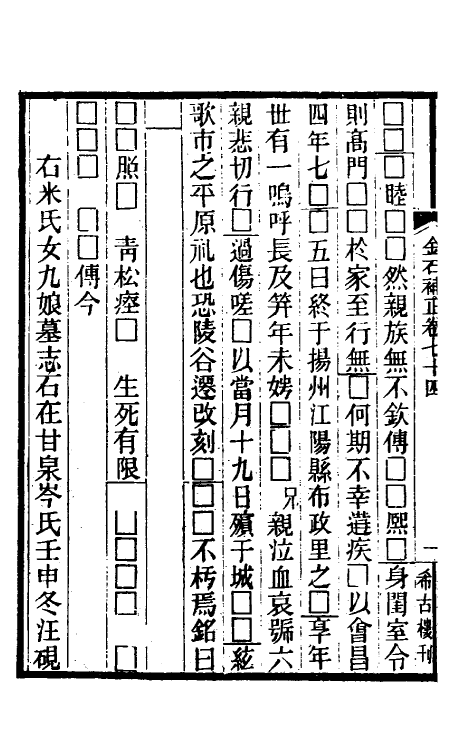 金石補正卷七十四　一　希古樓刊
□□□睦□□然親族無不欽傳□□熙□身閨室令
則高門□□於家至行無□何期不幸遘疾□以會昌
四年七□□五日終于揚州江陽縣布政里之□享年
廿有一嗚呼長及笄年未娉□□□兄親泣血哀號六
親悲切行□過傷嗟□以當月十九日殯于城□□絃
歌市之平原礼也恐陵谷遷改刻□□□不朽焉銘曰
□□照□　青松瘞□　生死有限　□□□□　□
□□□　□□傳今
右米氏女九娘墓志石在甘泉岑氏壬申冬汪硯